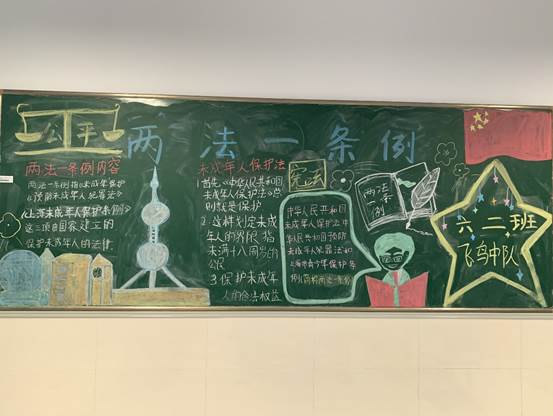 公平
两法一条例
两法一条例内容
两法一条例指《未成年保护
《预防未成年人犯罪法》
《上海未成年人保护条例》
这三项国家建立的
保护未成年人的法律
未成年人保护法
1.首先《中华人民共和国
未成年人保护法》总
则就是保护
2.这样划定未成
年人的界限 指
未满十八周岁的
公民
3.保护未成年
人的合法权益
宪法
中华人民共和国
未成年人保护法中
华人民共和国预防
未成年人犯罪法和
上海市青少年保护条
例(简称两法一条例)
两法
一条
例
六二班
飞鸟中队